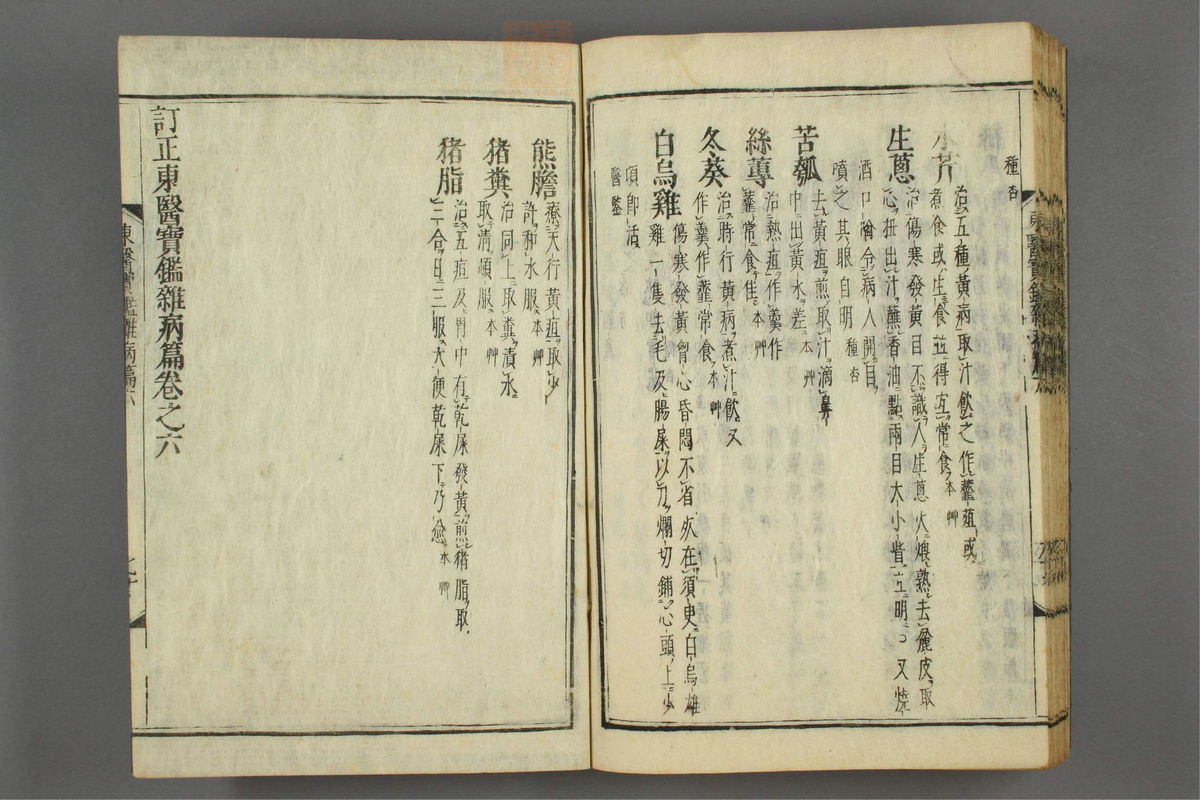 種杏
水芹 治五種黃病取汁飮之作虀葅或
煮食或生食並得宜常食本艸
生葱 治傷寒發黃目不識人生葱火煨熟去麄皮取
心扭出汁蘸香油點兩目大小眥立明○又燒
酒口噙令病人開目
噴之其眼自明種杏
苦瓠 去黃疸煎取汁滴鼻
中出黃水差本艸
絲蓴 治熱疸作羹作
虀常食佳本艸
冬葵 治時行黃病煮汁飮又
作羹作虀常食本艸
白烏雞 傷寒發黃曾心昏悶不省死在須臾白烏雄
雞一隻去毛及腸屎以刀爛切鋪心頭上少
頃卽活
醫鑒
熊膽 療天行黃疸取少
許和水服本艸
猪糞 治同上取糞漬水
取淸頓服本艸
猪脂 治五疸及胃中有乾屎發黃煎猪脂取
三合日三服大便乾屎下乃愈本艸
訂正東醫寶鑑雜病篇卷之六
東醫寶鑑雜病篇六